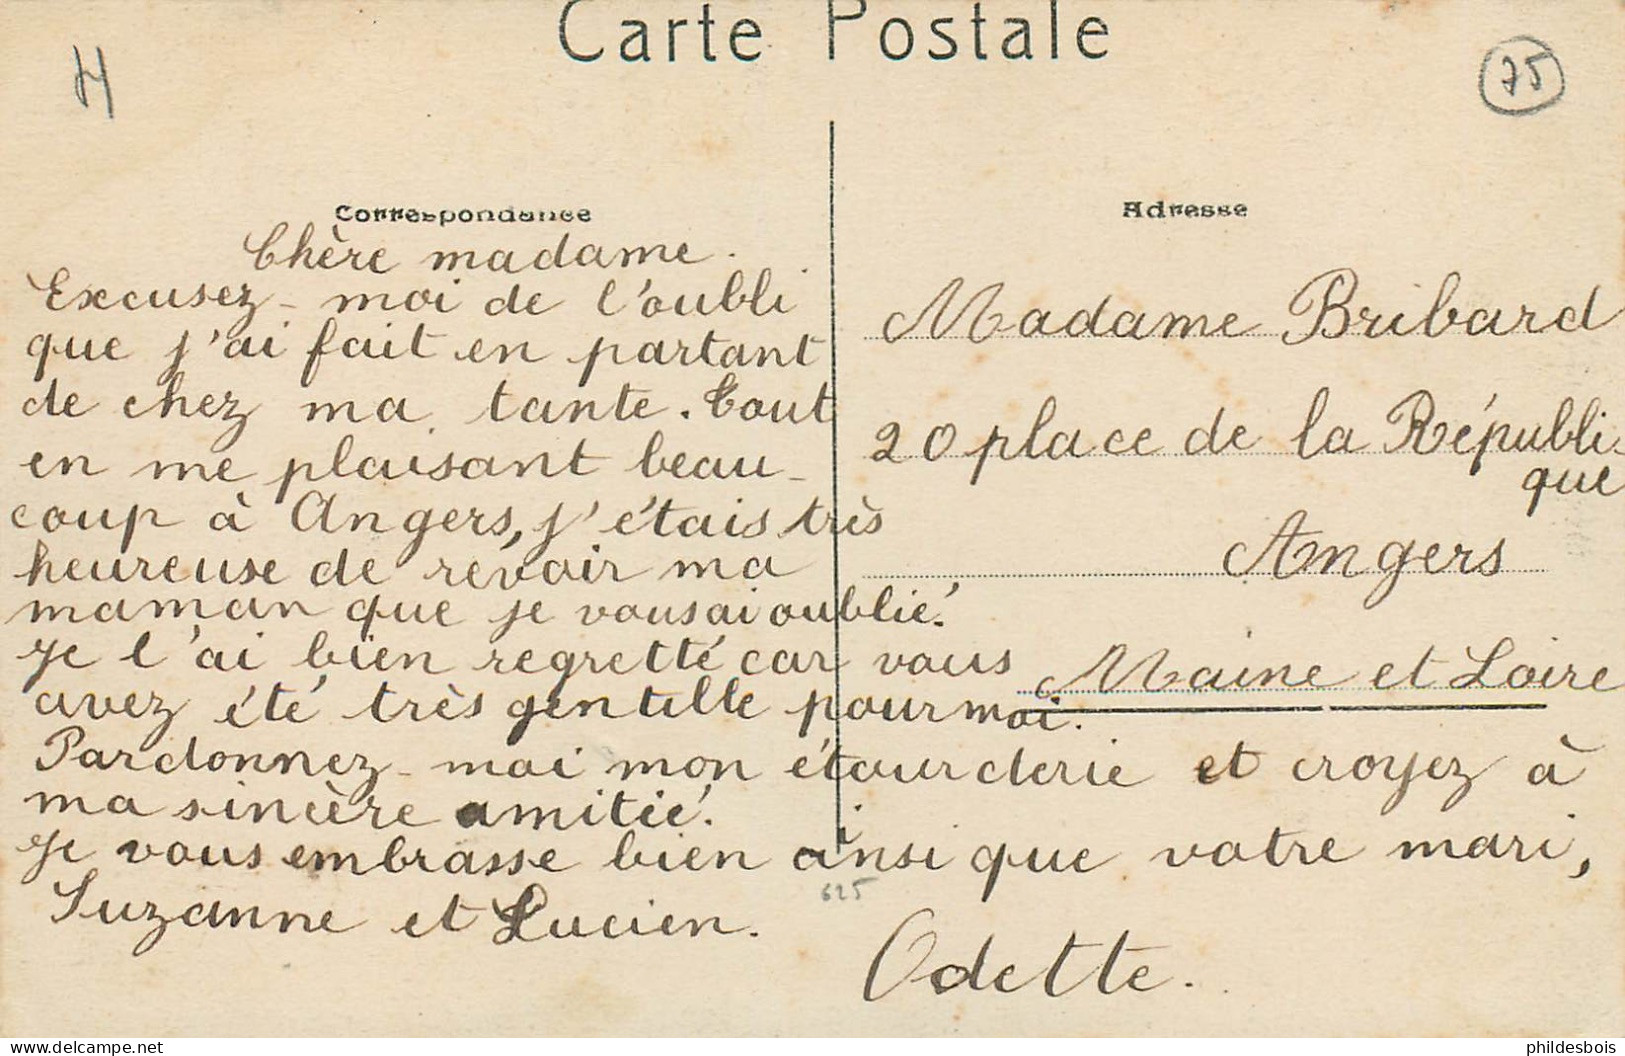 Carte Postale
H
75
Correspondance
Chère madame.
Excusez-moi de l'oubli
que j'ai fait en partant
de chez ma tante. Tout
en me plaisant beau-
coup à Angers, j'étais très
heureuse de revoir ma
maman que je vous ai oublié.
Je l'ai bien regretté car vous
avez été très gentille pour moi.
Pardonnez-moi mon étourderie et croyez à
ma sincère amitié.
Je vous embrasse bien ainsi que votre mari,
Suzanne et Lucien.
625
Odette.
Adresse
Madame Bribard
20 place de la Républi-
que
Angers
Maine et Loire
phildesbois